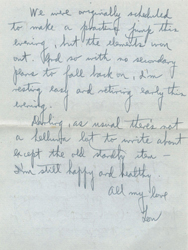 We were originally scheduled
to make a practice jump this
evening, but the elements won
out. And so with no secondary
plans to fall back on, I'm
resting easy and retiring early this
evening.
Darling, as usual there's not
a helluva lot to write about
except the old standby item -
I'm still happy and healthy.
All my love
Lou